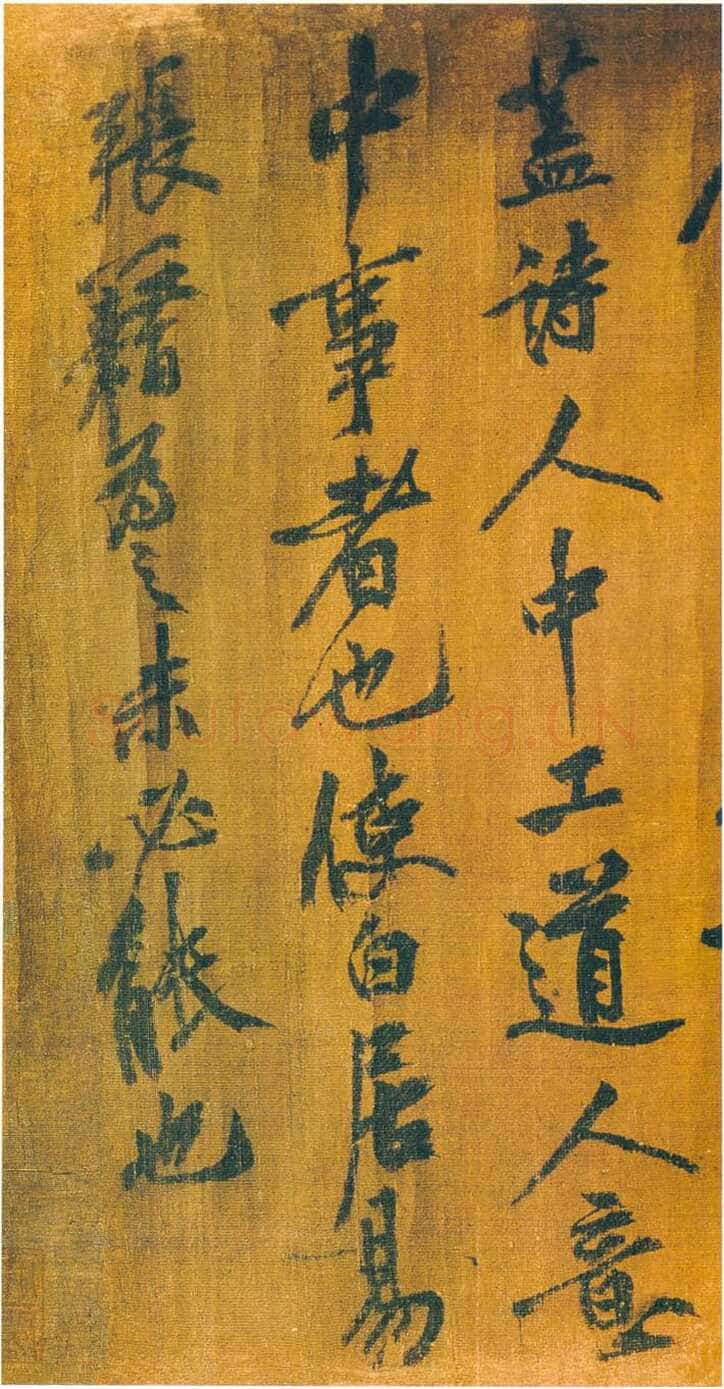 蓋詩人中工道人意
中事者也使白居易
張籍為之未必能也